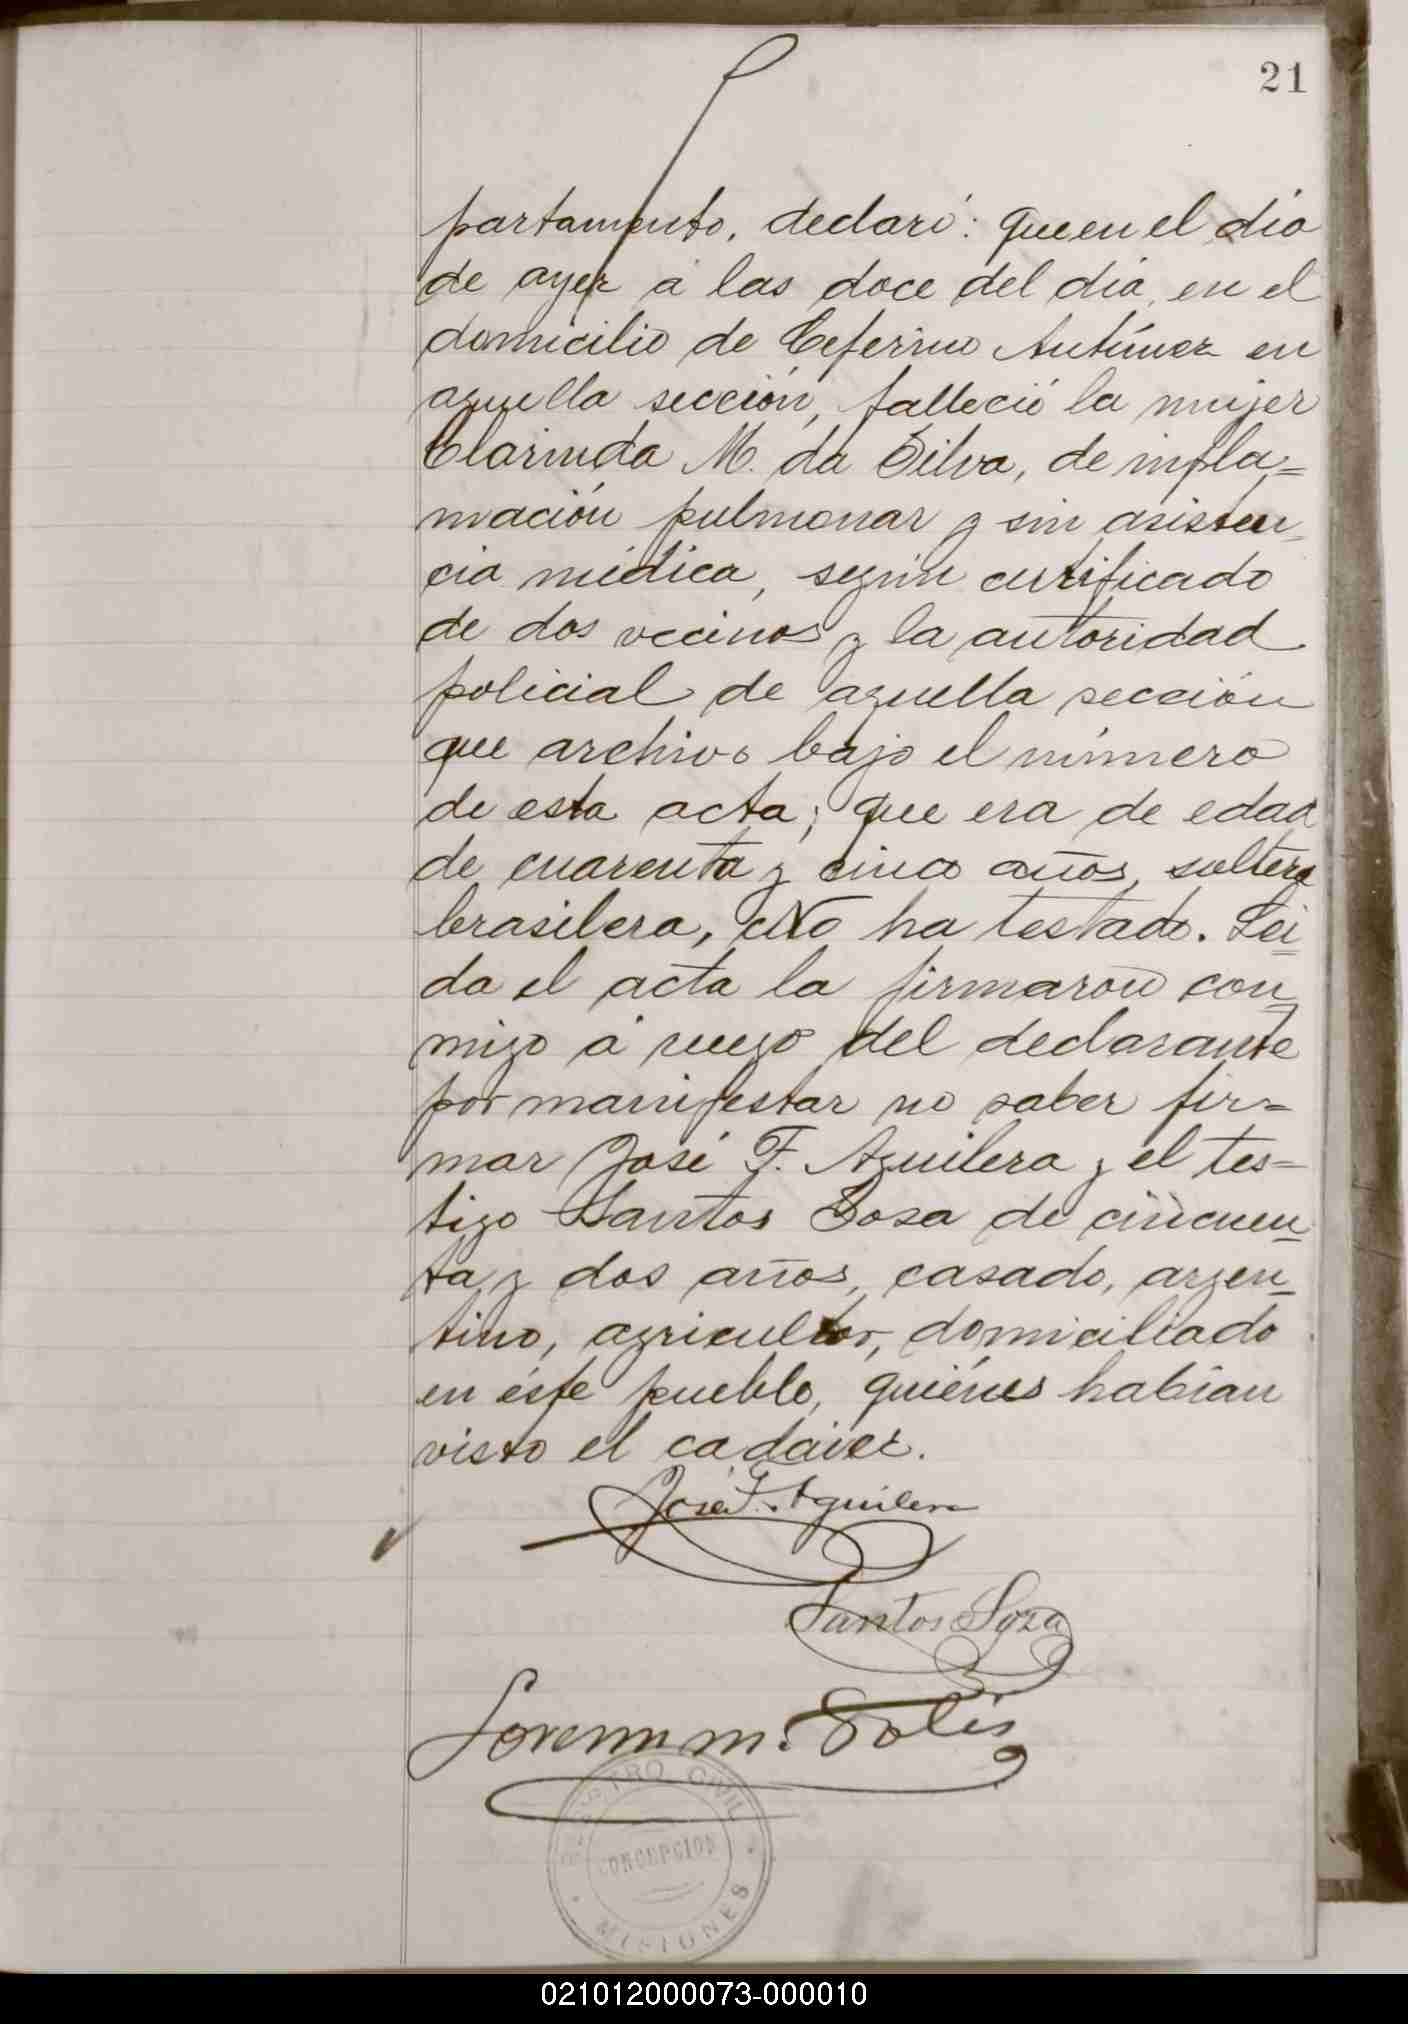 21
partamento, declaró: que en el día
de ayer á las doce del día, en el
domicilio de Ceferino Antúnez en
aquella sección, falleció la mujer
Clarinda M. da Silva, de infla=
mación pulmonar y sin asisten-
cia médica, según certificado
de dos vecinos y la autoridad
policial de aquella sección
que archivo bajo el número
de esta acta; que era de edad
de cuarenta y cinco años, soltera
brasilera, No ha testado. Leí
da el acta la firmaron con
migo á ruego del declarante
por manifestar no saber fir=
mar José F. Aguilera y el tes=
tigo Santos Sosa de cincuen
ta y dos años, casado, argen
tino, agricultor, domiciliado
en éste pueblo, quiénes habían
visto el cadáver.
José F. Aguilera
Santos Soza
M. Solis
REGISTRO CIVIL
CONCEPCION
MISIONES
021012000073-000010